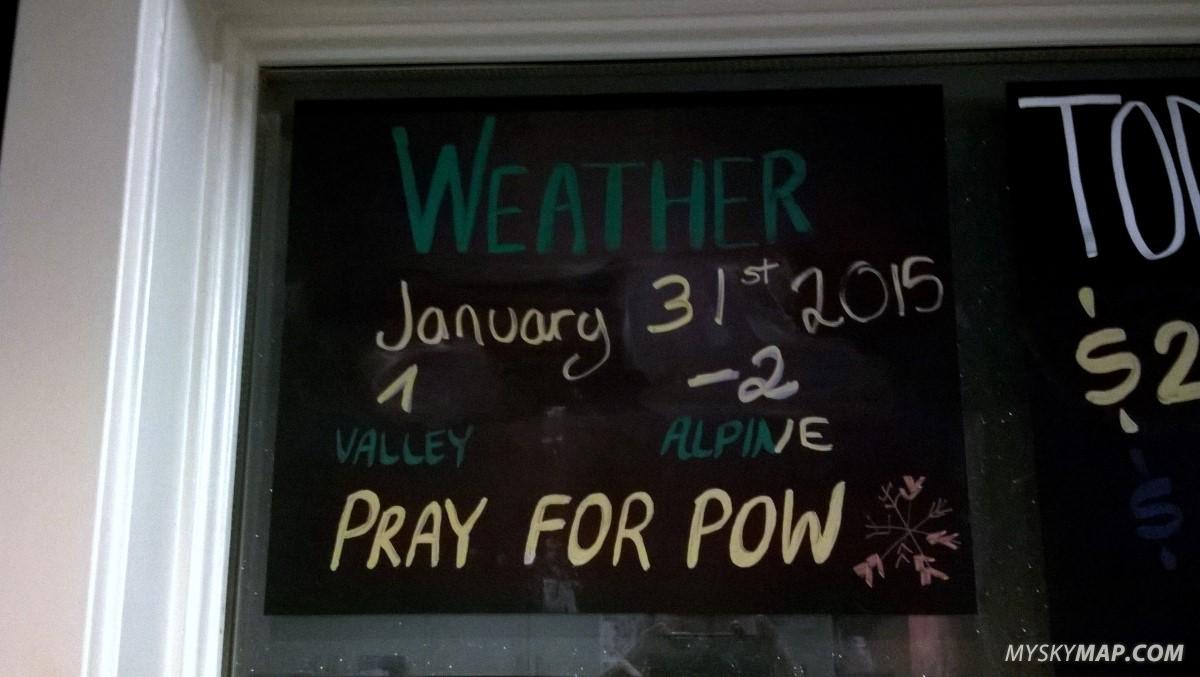 WEATHER
January 31st 2015
1 -2
VALLEY ALPINE
PRAY FOR POW
TOD
$2
$
MYSKYMAP.COM